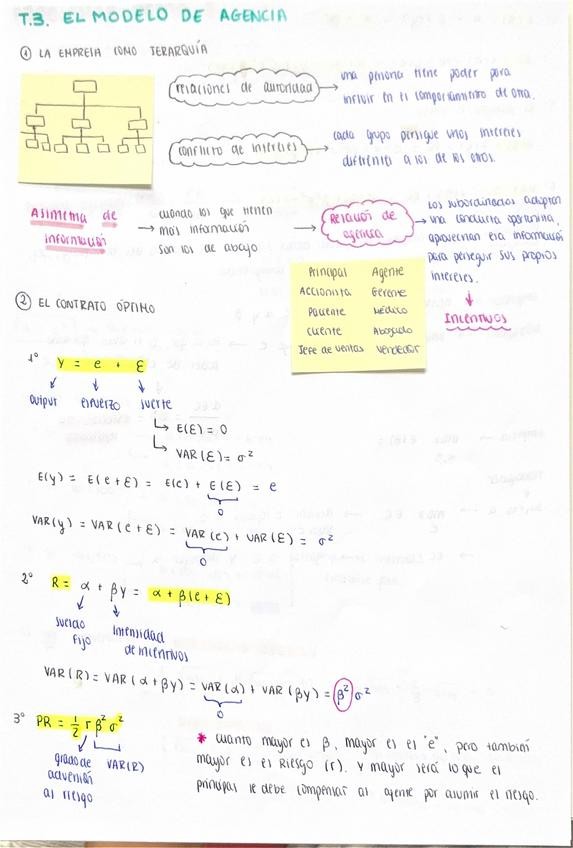 T.3. EL MODELO DE AGENCIA
① LA EMPRESA COMO JERARQUÍA
relaciones de autoridad → una persona tiene poder para
influir en el comportamiento de otra.
conflicto de intereses → cada grupo persigue unos intereses
diferentes a los de los otros.
Asimetría de
información
→ cuando los que tienen
más información
son los de abajo
→ Relación de
agencia
→ Los subordinados adoptan
una conducta oportunista,
aprovechan esa información
para perseguir sus propios
intereses.
↓
Incentivos
Principal Agente
Accionista Gerente
Paciente Médico
Cliente Abogado
Jefe de ventas Vendedor
② EL CONTRATO ÓPTIMO
1º y = e + Ɛ
output esfuerzo suerte
↳ E(Ɛ) = 0
↳ VAR(Ɛ) = σ²
E(y) = E(e + Ɛ) = E(e) + E(Ɛ) = e
0
VAR(y) = VAR(e + Ɛ) = VAR(e) + VAR(Ɛ) = σ²
0
2º R = α + βy = α + β(e + Ɛ)
sueldo
fijo
intensidad
de incentivos
VAR(R) = VAR(α + βy) = VAR(α) + VAR(βy) = β² σ²
0
3º PR = ½ r β² σ²
grado de
adversión
al riesgo
VAR(R)
* cuanto mayor es β, mayor es el "e", pero también
mayor es el Riesgo (r). Y mayor será lo que el
principal le debe compensar al agente por asumir el riesgo.